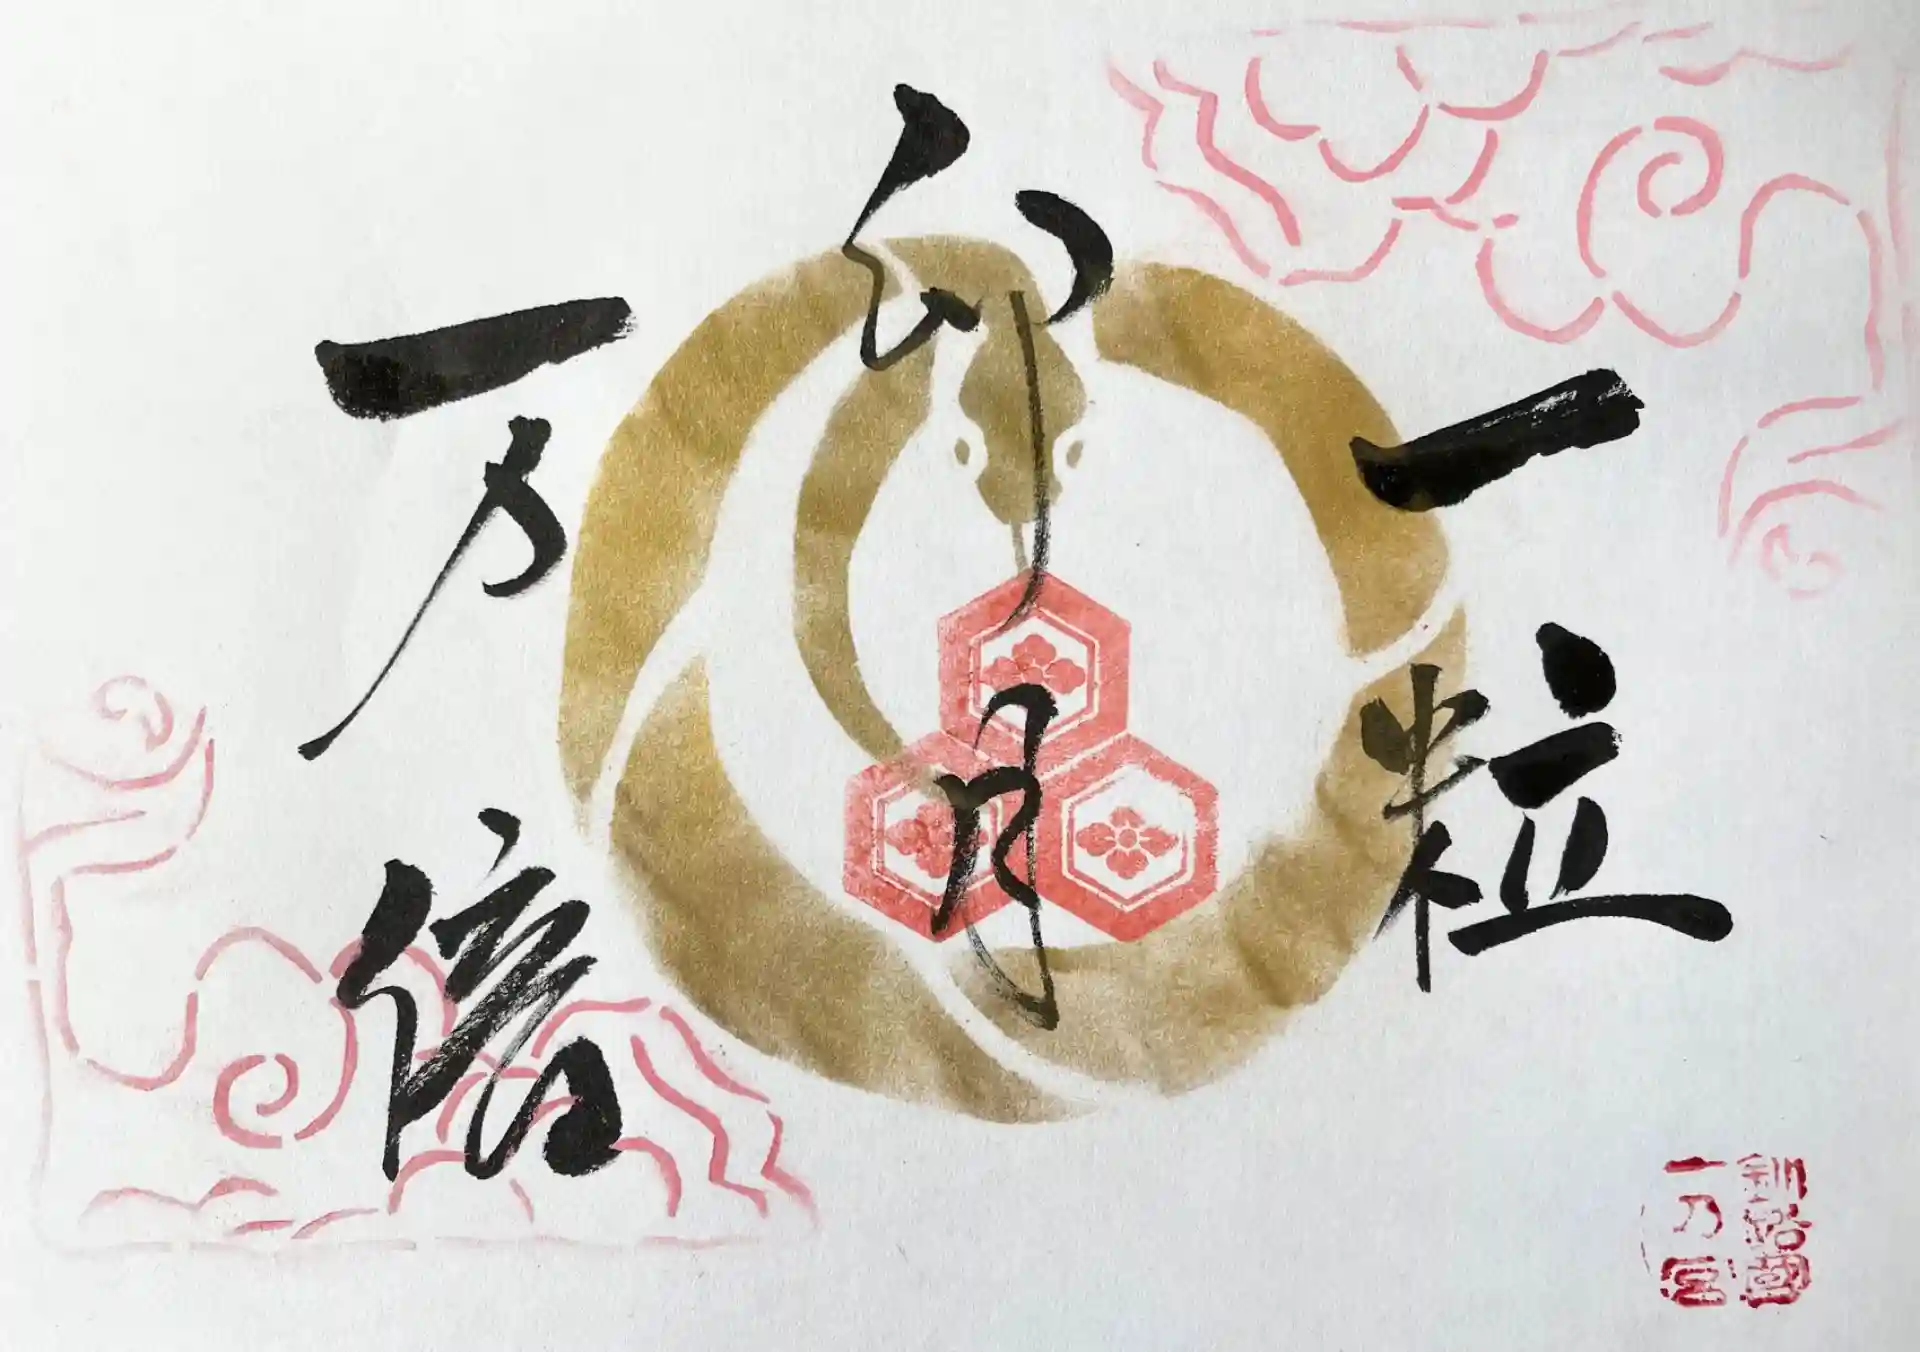 一粒
卯月
万倍
釧路國
一乃宮